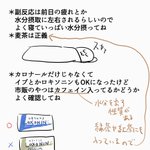 *副反応は前日の疲れとか
水分摂取に左右されるらしいので
よく寝ていっぱい水分摂ってね
*麦茶は正義
スヤァ
*カロナールだけじゃなくて
イブとかロキソニンもOKになったけど
市販のやつはカフェイン入ってるかどうか
よく確認してね
水分を出す
性質が